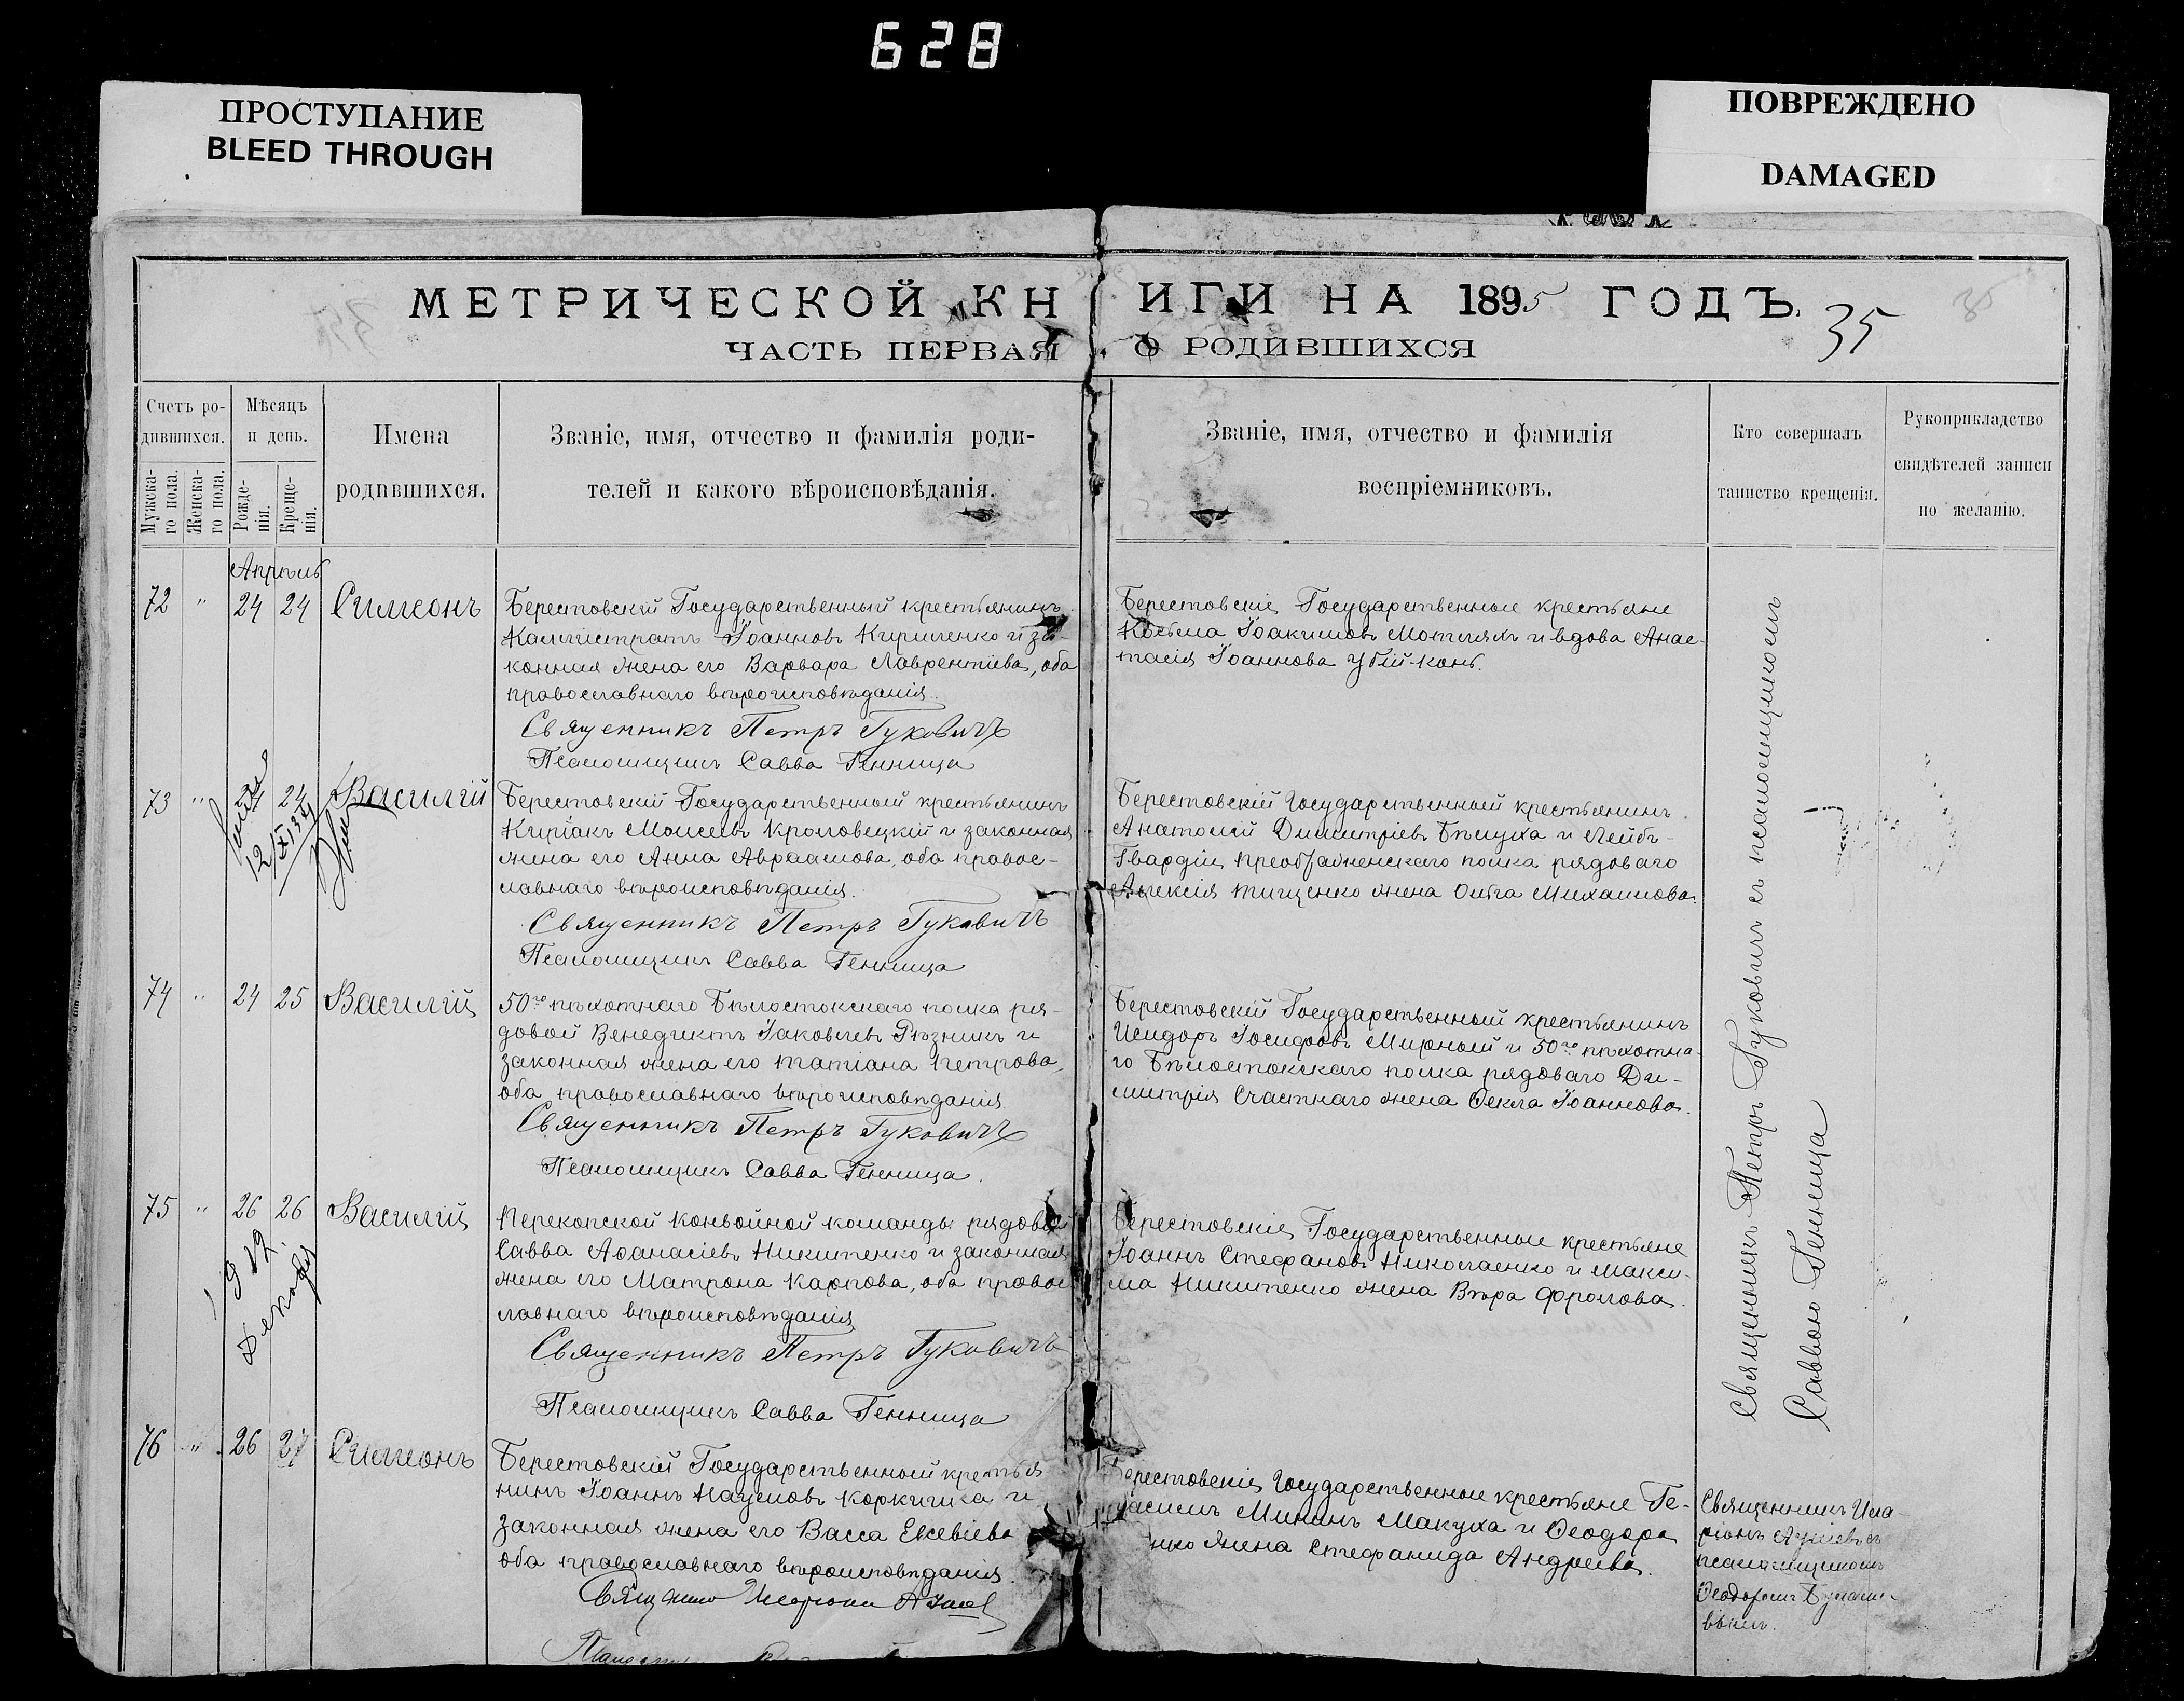 628
ПРОСТУПАНИЕ
BLEED THROUGH
ПОВРЕЖДЕНО
DAMAGED
МЕТРИЧЕСКОЙ КНИГИ НА 1895 ГОДЪ.
35
ЧАСТЬ ПЕРВАЯ, О РОДИВШИХСЯ
Счетъ ро-
дившихся.
Мужска-
го пола.
Женска-
го пола.
Мѣсяцъ
и день.
Рожде-
нія.
Креще-
нія.
Имена
родившихся.
Званіе, имя, отчество и фамилія роди-
телей и какого вѣроисповѣданія.
Званіе, имя, отчество и фамилія
воспріемниковъ.
Кто совершалъ
таинство крещенія.
Рукоприкладство
свидѣтелей записи
по желанію.
Апрѣль
72 " 24 24 Симеонъ
Берестовскій Государственный крестьянинъ
Каллистратъ Іоанновъ Кириченко и за-
конная жена его Варвара Лаврентіева, оба
православнаго вѣроисповѣданія.
Священникъ Петръ Гуковичъ
Псаломщикъ Савва Генница
Берестовскіе Государственные крестьяне
Косьма Іоакимовъ и вдова Анас-
тасія Іоаннова Убій-конь.
73 " 24 24 Василій
12/XI 37
Берестовскій Государственный крестьянинъ
Киріакъ Моисеевъ Кроловецкій и законная
жена его Анна Авраамова, оба правос-
лавнаго вѣроисповѣданія.
Священникъ Петръ Гуковичъ
Псаломщикъ Савва Генница
Берестовскій Государственный крестьянинъ
Анатолій Димитріевъ Бѣлуха и Лейбъ-
Гвардіи Преображенскаго полка рядоваго
Алексія Тищенко жена Ольга Михаилова.
74 " 24 25 Василій
50го пѣхотнаго Бѣлостокскаго полка ря-
довой Венедиктъ Іаковлевъ Рѣзникъ и
законная жена его Татіана Петрова,
оба православнаго вѣроисповѣданія.
Священникъ Петръ Гуковичъ
Псаломщикъ Савва Генница.
Берестовскій Государственный крестьянинъ
Исидоръ Іосифовъ Мирный и 50го пѣхотна-
го Бѣлостокскаго полка рядоваго Ди-
митрія Счастнаго жена Ѳекла Іоаннова.
75 " 26 26 Василій
Перекопской конвойной команды рядовой
Савва Аѳанасіевъ Никитенко и законная
жена его Матрона Карпова, оба правос
лавнаго вѣроисповѣданія
Священникъ Петръ Гуковичъ
Псаломщикъ Савва Генница
Берестовскіе Государственные крестьяне
Іоаннъ Стефановъ Николаенко и Макси-
ма Никитенко жена Вѣра Фролова.
Священникъ Петръ Гуковичъ съ псаломщикомъ
Саввою Генница
76 " 26 27 Симеонъ
Берестовскій Государственный крестья
нинъ Іоаннъ Наумовъ Коркишка и
законная жена его Васса Евсевіева
оба православнаго вѣроисповѣданія.
Берестовскіе Государственные крестьяне Ге-
расимъ Мининъ Макуха и Ѳеодора
нко жена Стефанида Андреева.
Священникъ Ила-
ріонъ съ
псаломщикомъ
Ѳеодоромъ